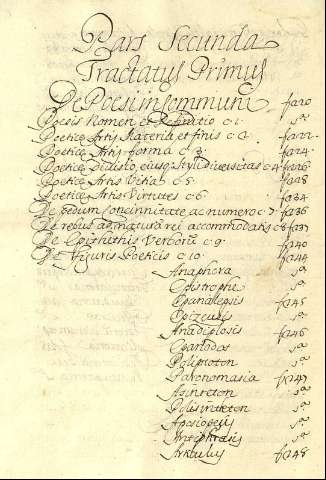 Pars Secunda
Tractatus Primus
De Poesi in communi fa20
Poesis Nomen et Definitio c 1. sª
Poeticæ Artis Materia et finis c 2. fa22
Poeticæ Artis forma c 3. fa24
Poeticæ Divisio, eiusq. styli diversitas c 4 fa26
Poeticæ Artis Vitia c 5. fa28
Poeticæ Artis Virtutes c 6. fa34
De pedum concinnitate ac numero c 7. fa36
De rebus ad naturā rei accommodatis c 8 fa37
De Epithethis Verborū c 9. fa40
De Figuris Poeticis c 10. fa44
Anaphora sª
Epistrophe sª
Epanalepsis fa45
Epizeusis sª
Anadiplosis fa46
Epanodos sª
Poliptoton sª
Paronomasia fa47
Asinreton sª
Polisindeton sª
Aposiopesis sª
Antiphrasis sª
fa48